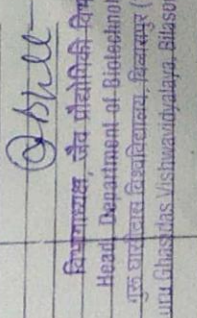 विभागाध्यक्ष, जैव प्रौद्योगिकी
Head, Department of Biotechnol
गुरू घासीदास विश्वविद्यालय, बिलासपुर (
uru Ghasidas Vishwavidyalaya, Bilaspu